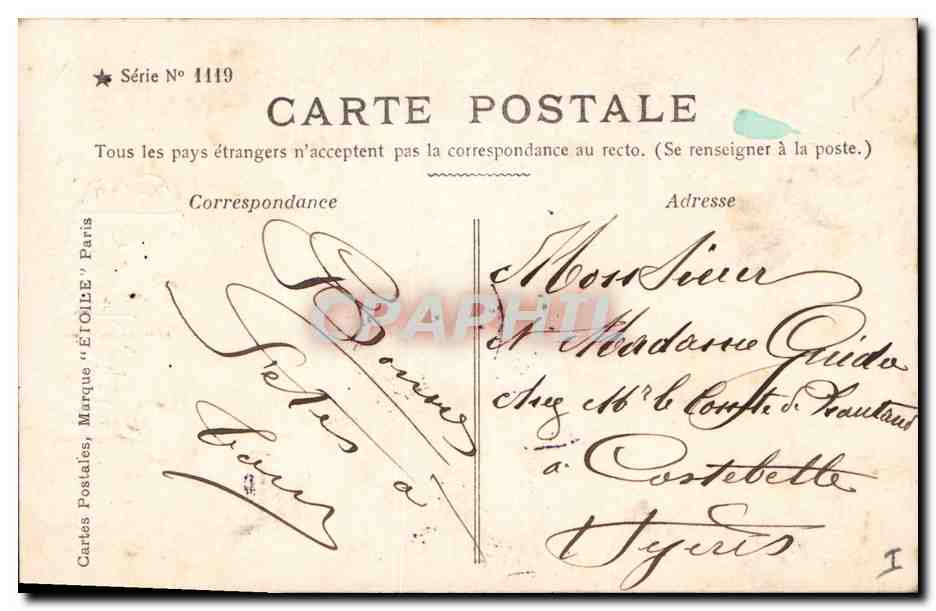 ★ Série Nº 1119
CARTE POSTALE
Tous les pays étrangers n'acceptent pas la correspondance au recto. (Se renseigner à la poste.)
Correspondance
Bonnes
Fêtes à
tous
Adresse
Monsieur
et Madame Guido
chez Mr le Comte de Lautaud
à Costebelle
Hyères
Cartes Postales, Marque "ETOILE" Paris
CPAPHIL
I